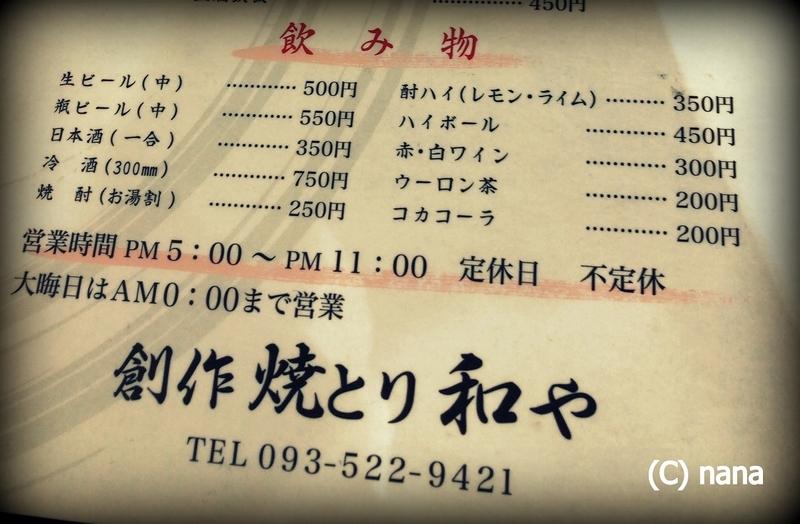 450円
飲み物
生ビール(中) ………… 500円
瓶ビール(中) ………… 550円
日本酒(一合) ………… 350円
冷 酒(300㎜) ………… 750円
焼 酎(お湯割) ………… 250円
酎ハイ(レモン・ライム) ……… 350円
ハイボール ………… 450円
赤・白ワイン ………… 300円
ウーロン茶 ………… 200円
コカコーラ ………… 200円
営業時間 PM 5：00 〜 PM 11：00 定休日 不定休
大晦日はAM0：00まで営業
創作 焼とり 和や
TEL 093-522-9421
(C) nana